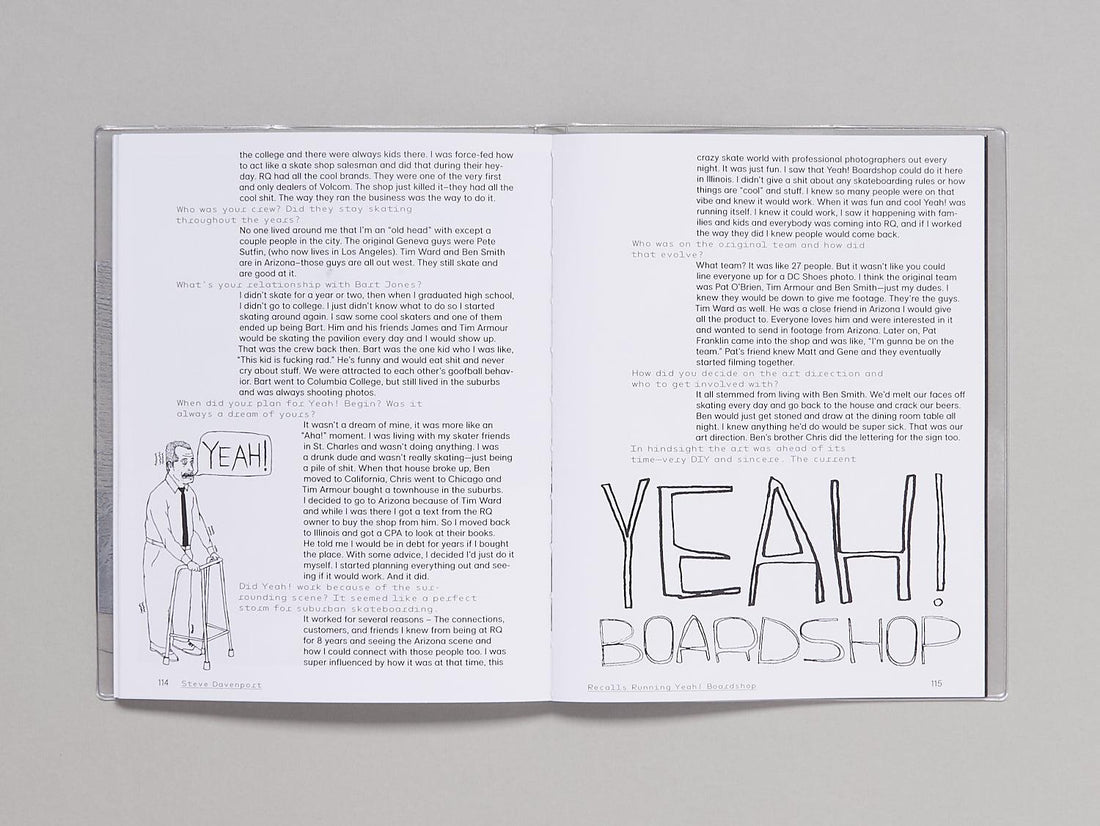 the college and there were always kids there. I was force-fed how
to act like a skate shop salesman and did that during their hey-
day. RQ had all the cool brands. They were one of the very first
and only dealers of Volcom. The shop just killed it–they had all the
cool shit. The way they ran the business was the way to do it.
Who was your crew? Did they stay skating
throughout the years?
No one lived around me that I'm an "old head" with except a
couple people in the city. The original Geneva guys were Pete
Sutfin, (who now lives in Los Angeles). Tim Ward and Ben Smith
are in Arizona–those guys are all out west. They still skate and
are good at it.
What's your relationship with Bart Jones?
I didn't skate for a year or two, then when I graduated high school,
I didn't go to college. I just didn't know what to do so I started
skating around again. I saw some cool skaters and one of them
ended up being Bart. Him and his friends James and Tim Armour
would be skating the pavilion every day and I would show up.
That was the crew back then. Bart was the one kid who I was like,
"This kid is fucking rad." He's funny and would eat shit and never
cry about stuff. We were attracted to each other's goofball behav-
ior. Bart went to Columbia College, but still lived in the suburbs
and was always shooting photos.
When did your plan for Yeah! Begin? Was it
always a dream of yours?
It wasn't a dream of mine, it was more like an
"Aha!" moment. I was living with my skater friends
in St. Charles and wasn't doing anything. I was
a drunk dude and wasn't really skating—just being
a pile of shit. When that house broke up, Ben
moved to California, Chris went to Chicago and
Tim Armour bought a townhouse in the suburbs.
I decided to go to Arizona because of Tim Ward
and while I was there I got a text from the RQ
owner to buy the shop from him. So I moved back
to Illinois and got a CPA to look at their books.
He told me I would be in debt for years if I bought
the place. With some advice, I decided I'd just do it
myself. I started planning everything out and see-
ing if it would work. And it did.
YEAH!
Did Yeah! work because of the sur-
rounding scene? It seemed like a perfect
storm for suburban skateboarding.
It worked for several reasons – The connections,
customers, and friends I knew from being at RQ
for 8 years and seeing the Arizona scene and
how I could connect with those people too. I was
super influenced by how it was at that time, this
114 Steve Davenport
crazy skate world with professional photographers out every
night. It was just fun. I saw that Yeah! Boardshop could do it here
in Illinois. I didn't give a shit about any skateboarding rules or how
things are "cool" and stuff. I knew so many people were on that
vibe and knew it would work. When it was fun and cool Yeah! was
running itself. I knew it could work, I saw it happening with fam-
ilies and kids and everybody was coming into RQ, and if I worked
the way they did I knew people would come back.
Who was on the original team and how did
that evolve?
What team? It was like 27 people. But it wasn't like you could
line everyone up for a DC Shoes photo. I think the original team
was Pat O'Brien, Tim Armour and Ben Smith—just my dudes. I
knew they would be down to give me footage. They're the guys.
Tim Ward as well. He was a close friend in Arizona I would give
all the product to. Everyone loves him and were interested in it
and wanted to send in footage from Arizona. Later on, Pat
Franklin came into the shop and was like, "I'm gunna be on the
team." Pat's friend knew Matt and Gene and they eventually
started filming together.
How did you decide on the art direction and
who to get involved with?
It all stemmed from living with Ben Smith. We'd melt our faces off
skating every day and go back to the house and crack our beers.
Ben would just get stoned and draw at the dining room table all
night. I knew anything he'd do would be super sick. That was our
art direction. Ben's brother Chris did the lettering for the sign too.
In hindsight the art was ahead of its
time—very DIY and sincere. The current
YEAH!
BOARDSHOP
Recalls Running Yeah! Boardshop 115